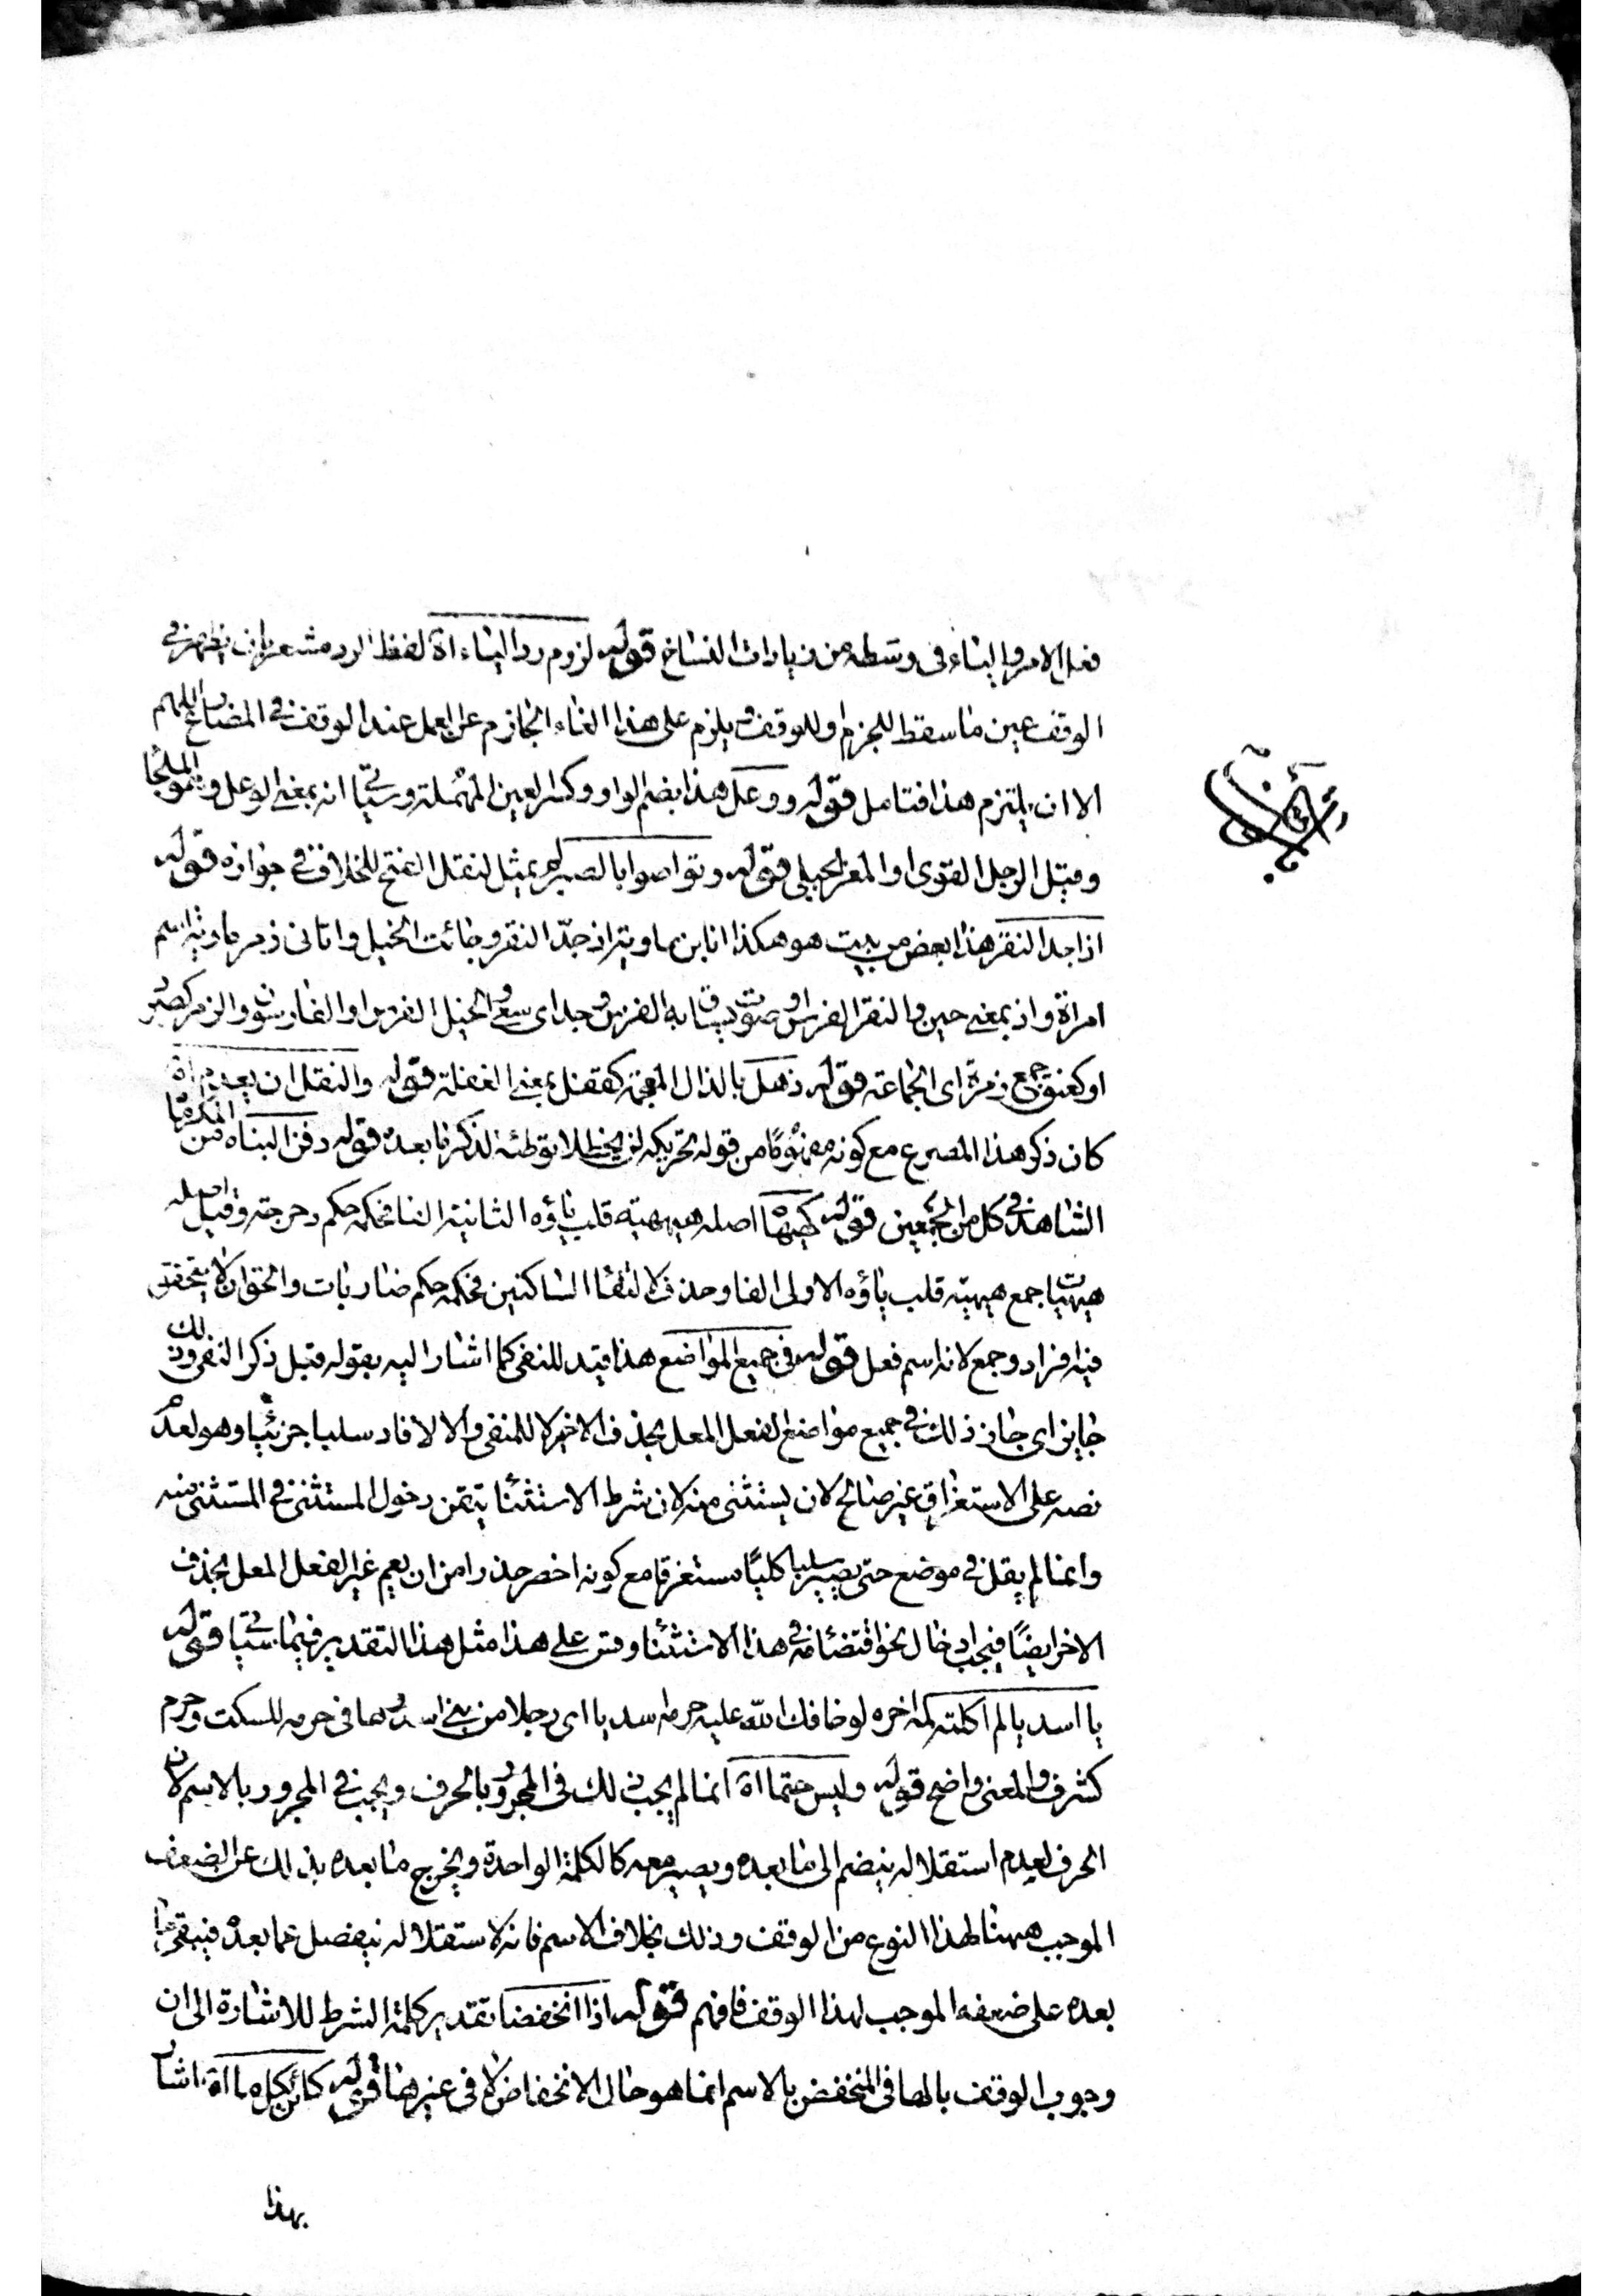 فعل الامر والبناء فى وسطه من زيادات النساخ قوله لزوم رد الياء اة لفظ الرد مشعر بان يظهر فى
الوقف عين ما سقط للجزم او للوقف ويلزم على هذا الغاء الجازم عن العمل عند الوقف فى المضارع اللهم
الا ان يلتزم هذا فتامل قوله ووعل هذا بضم الواو وكسر العين المهملة وسياتى انه بمعنى الوعل وهو الملجأ
وقيل الرجل القوى او المعز الجبلى قوله وتواصوا بالصبر لم يمثل لنقل الفتح للخلاف فى جوازه قوله
اذ اجد النقر هذا بعض من بيت هو هكذا انا ابن ماوية اذ جدّ النقر وجائت الخيل واتانى زمر ماوية اسم
امراة واذ بمعنى حين والنقر الفراس او صوت يساق به الفرس وجد اى سعى والخيل الفرس او الفارسون والزمر كصبر
او كعنق جمع زمرة اى الجماعة قوله ذهل بالذال المعجمة كقفل بمعنى الغفلة قوله والنقل ان يعدم اة
كان ذكر هذا المصرع مع كونه مفهومًا من قوله تحريكه لن يحظلا توطئة لذكر ما بعده قوله دفن البناه من المكرماة
الشاهد فى كل من الجمعين قوله كهيهاة اصله هيهية قلب ياؤه الثانية الفا فحكمه حكم دحرجة وقيل اصله
هيهيات جمع هيهية قلب ياؤه الاولى الفا وحذف لالتقاء الساكنين فحكمه حكم ضاربات والحق ان لا يتحقق
فيه افراد وجمع لانه اسم فعل قوله فى جميع المواضع هذا قيد للنفى كما اشار اليه بقوله قبل ذكر النفى وذلك
جايز اى جاز ذلك فى جميع مواضع الفعل المعل بحذف الاخر لا للمنفى والا لافاد سلبا جزئيا وهو لعدم
نصه على الاستغراق غير صالح لان يستثنى منه لان شرط الاستثناء تيقن دخول المستثنى فى المستثنى منه
وانما لم يقل فى موضع حتى يصير سلبا كليًا مستغرقا مع كونه اخصر حذرا من ان يعم غير الفعل المعل بحذف
الاخر ايضًا فيجب ادخال نحو اقتضاء مه فى هذا الاستثناء وقس على هذا مثل هذا التقدير فيما سياتى قوله
يا اسديا لم اكلته لمه اخره لو خافك الله عليه حرمه اسديا اى رجلا من بنى اسد والها فى حرمه للسكت وحرم
كشرف والمعنى واضح قوله وليس حتما اة انما لم يجب ذلك فى المجرور بالحرف ويجب فى المجرور بالاسم لان
الحرف لعدم استقلاله ينضم الى ما بعده ويصير معه كالكلمة الواحدة ويخرج ما بعده بذلك عن الضعف
الموجب ههنا لهذا النوع من الوقف وذلك بخلاف الاسم فانه لاستقلاله ينفصل عما بعده فيبقى ما
بعده على ضعفه الموجب لهذا الوقف فافهم قوله اذا انخفضا تقدير كلمة الشرط للاشارة الى ان
وجوب الوقف بالها فى المنخفض بالاسم انما هو حال الانخفاض لا فى غيرها قوله كائن بكل ما اة اشار
بهذا